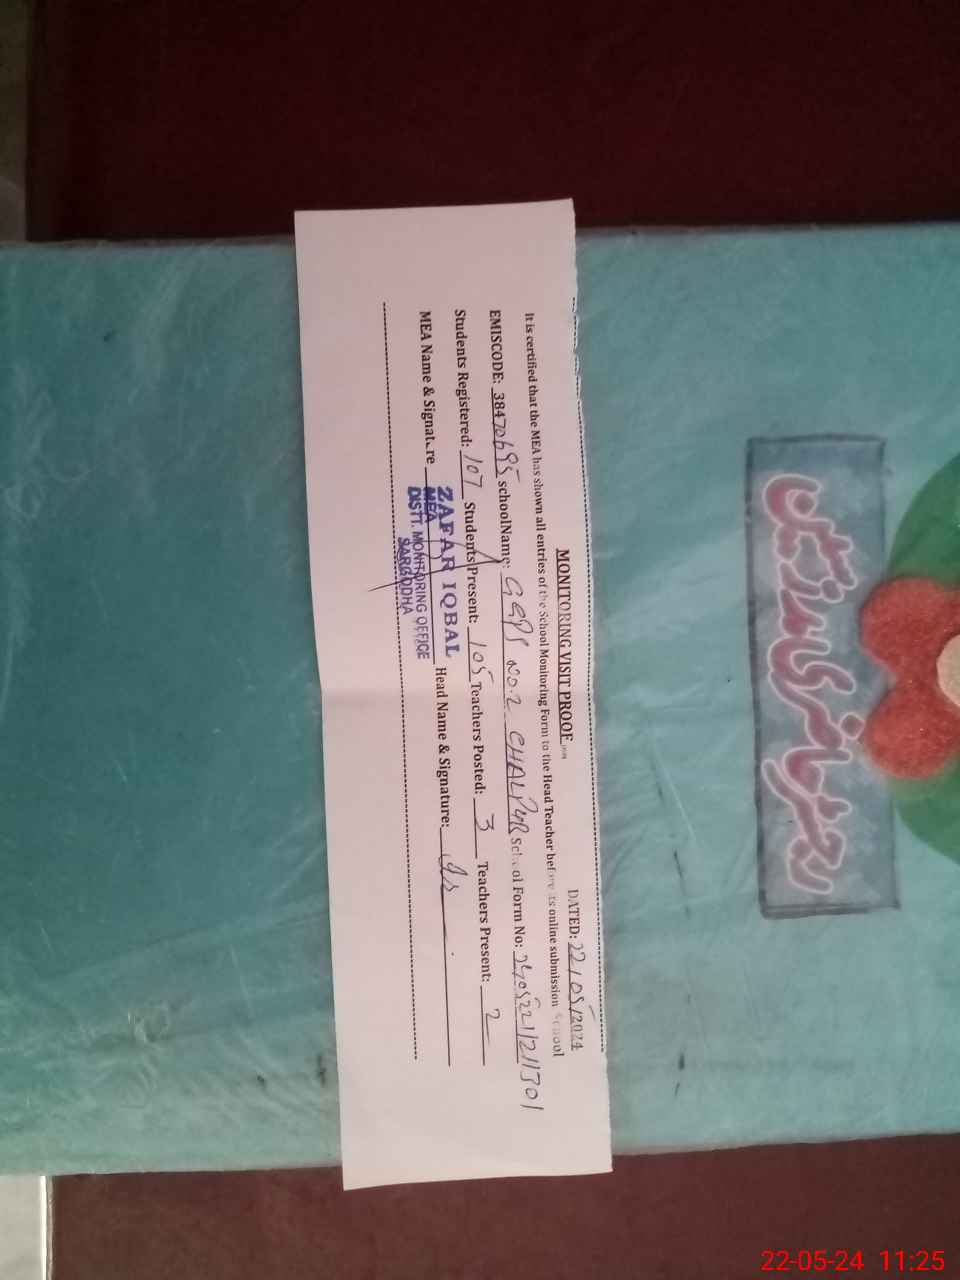 MONITORING VISIT PROOF
DATED: 22/05/2024
It is certified that the MEA has shown all entries of the School Monitoring Form to the Head Teacher before its online submission School
EMISCODE: 38470695 schoolName: GGPS NO.2 CHALPUR School Form No:
Students Registered: 107 Students Present: 105 Teachers Posted: 3 Teachers Present: 2
MEA Name & Signature Head Name & Signature:
ZAFAR IQBAL
MEA
DISTT. MONITORING OFFICE
SARGODHA
رجسٹر حاضری مدرسین
22-05-24 11:25